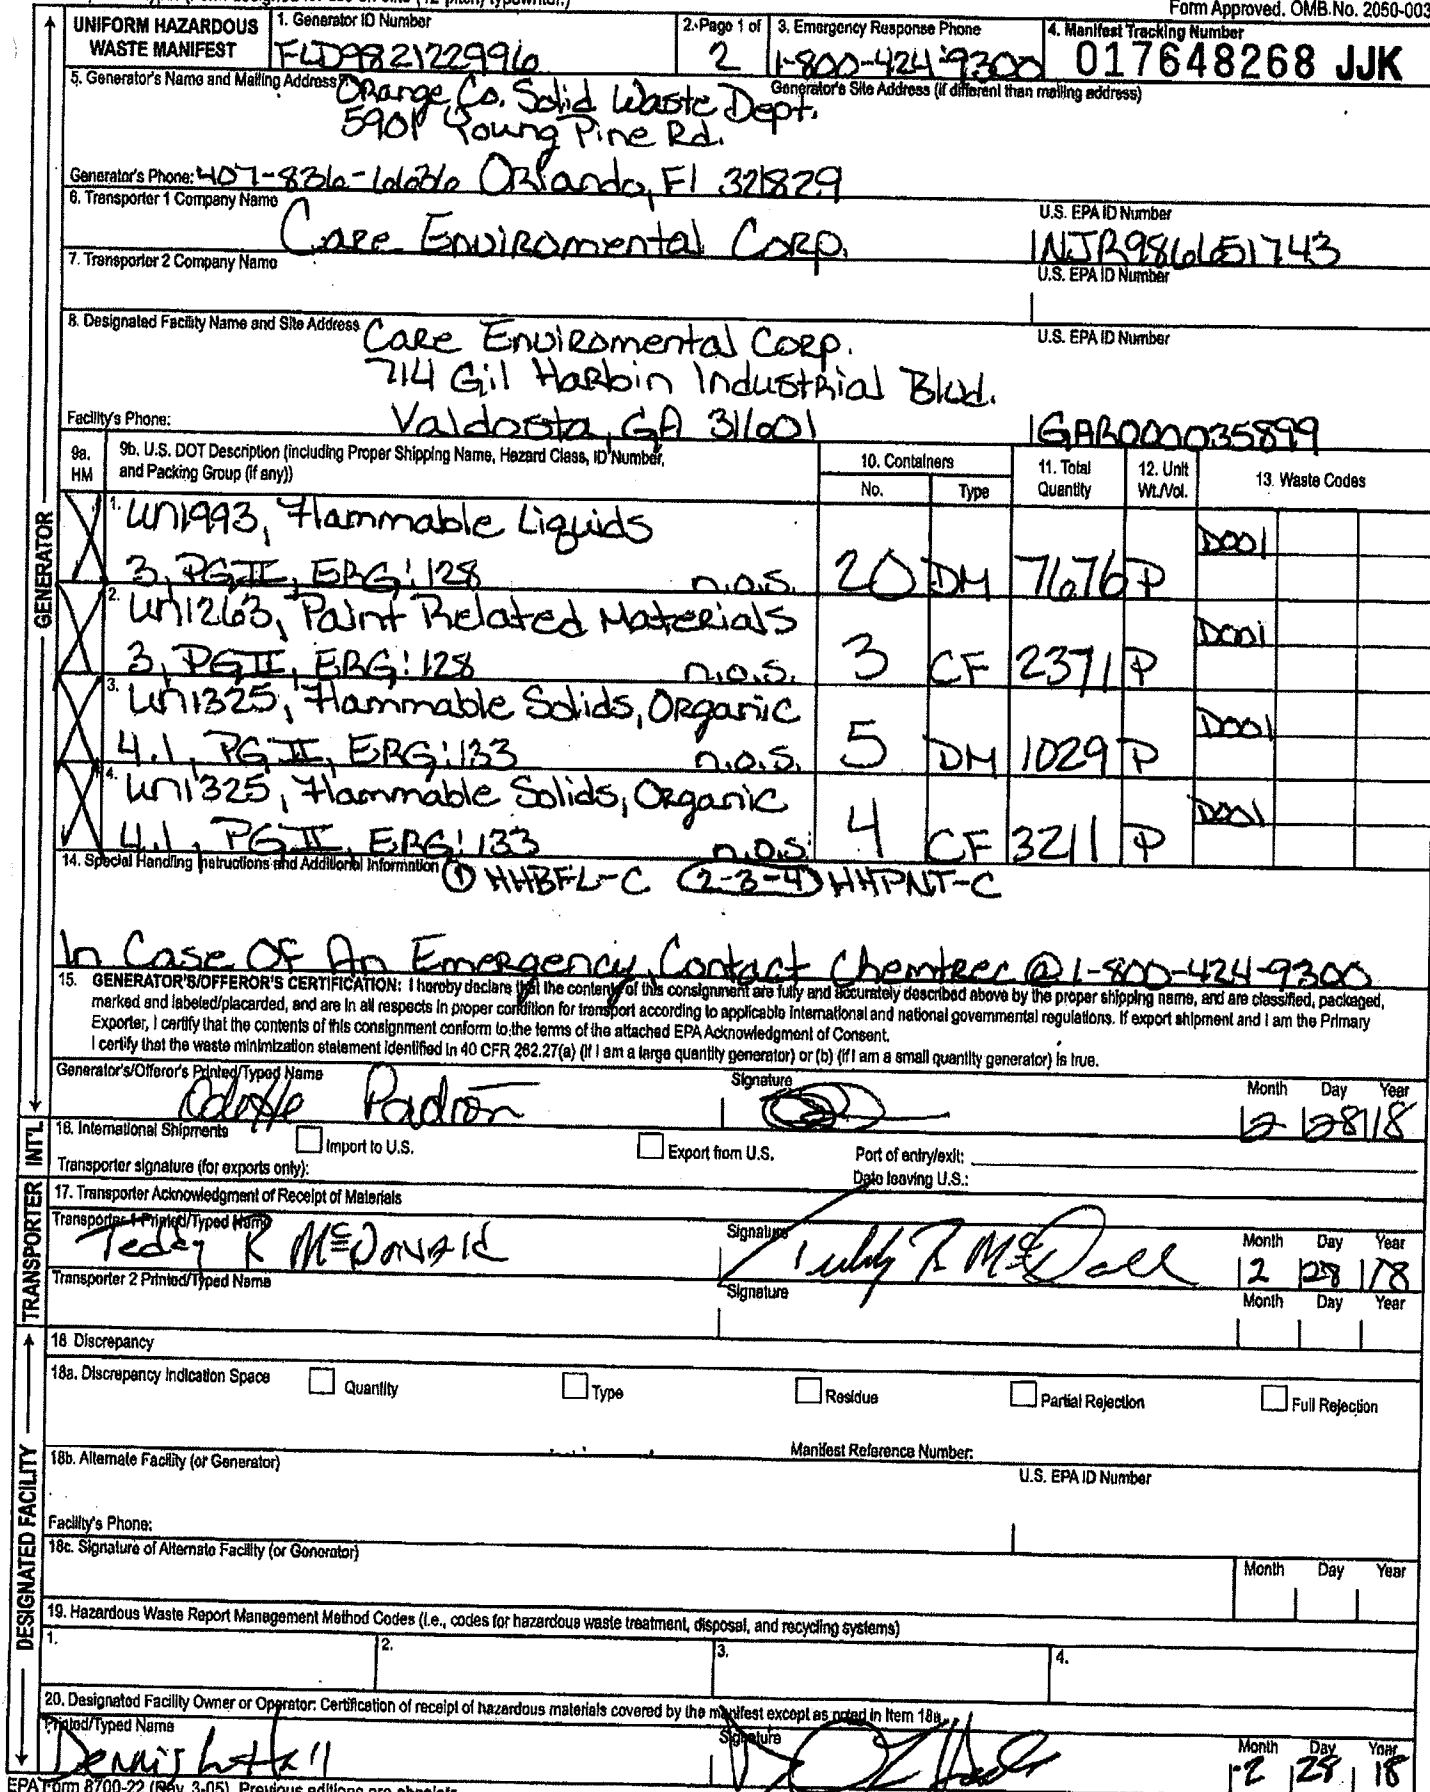 Form Approved. OMB No. 2050-003
UNIFORM HAZARDOUS WASTE MANIFEST
1. Generator ID Number
FLD982122996
2. Page 1 of
2
3. Emergency Response Phone
1-800-424-9300
4. Manifest Tracking Number
017648268 JJK
5. Generator's Name and Mailing Address
Orange Co. Solid Waste Dept.
5901 Young Pine Rd.
Generator's Site Address (if different than mailing address)
Generator's Phone: 407-836-6636 Orlando, Fl 32829
6. Transporter 1 Company Name
Care Enviromental Corp.
U.S. EPA ID Number
NJR986651743
7. Transporter 2 Company Name
U.S. EPA ID Number
8. Designated Facility Name and Site Address
Care Enviromental Corp.
714 Gil Harbin Industrial Blvd.
Valdosta, GA 31601
U.S. EPA ID Number
GAR000035899
Facility's Phone:
9a. HM
9b. U.S. DOT Description (including Proper Shipping Name, Hazard Class, ID Number, and Packing Group (if any))
10. Containers
No.
Type
11. Total Quantity
12. Unit Wt./Vol.
13. Waste Codes
X 1. UN1993, Flammable Liquids
3, PGII, ERG:128 n.o.s. 20 DM 7676 P D001
X 2. UN1263, Paint Related Materials
3, PGII, ERG:128 n.o.s. 3 CF 2371 P D001
X 3. UN1325, Flammable Solids, Organic
4.1, PGII, ERG:133 n.o.s. 5 DM 1029 P D001
X 4. UN1325, Flammable Solids, Organic
4.1, PGII, ERG:133 n.o.s. 4 CF 3211 P D001
14. Special Handling Instructions and Additional Information
① HHBFL-C (2-3-4) HHPNT-C
In Case Of An Emergency, Contact Chemtrec @ 1-800-424-9300
15. GENERATOR'S/OFFEROR'S CERTIFICATION: I hereby declare that the contents of this consignment are fully and accurately described above by the proper shipping name, and are classified, packaged,
marked and labeled/placarded, and are in all respects in proper condition for transport according to applicable international and national governmental regulations. If export shipment and I am the Primary
Exporter, I certify that the contents of this consignment conform to the terms of the attached EPA Acknowledgment of Consent.
I certify that the waste minimization statement identified in 40 CFR 262.27(a) (if I am a large quantity generator) or (b) (if I am a small quantity generator) is true.
Generator's/Offeror's Printed/Typed Name
Padron
Signature
Month Day Year
2 28 18
16. International Shipments
Import to U.S.
Export from U.S.
Port of entry/exit:
Transporter signature (for exports only):
Date leaving U.S.:
17. Transporter Acknowledgment of Receipt of Materials
Transporter 1 Printed/Typed Name
Teddy R McDonald
Signature
Month Day Year
2 28 18
Transporter 2 Printed/Typed Name
Signature
Month Day Year
18. Discrepancy
18a. Discrepancy Indication Space
Quantity
Type
Residue
Partial Rejection
Full Rejection
Manifest Reference Number:
18b. Alternate Facility (or Generator)
U.S. EPA ID Number
Facility's Phone:
18c. Signature of Alternate Facility (or Generator)
Month Day Year
19. Hazardous Waste Report Management Method Codes (i.e., codes for hazardous waste treatment, disposal, and recycling systems)
1.
2.
3.
4.
20. Designated Facility Owner or Operator: Certification of receipt of hazardous materials covered by the manifest except as noted in Item 18a
Printed/Typed Name
Dennis
Signature
Month Day Year
2 28 18
EPA Form 8700-22 (Rev. 3-05) Previous editions are obsolete
GENERATOR
INT'L
TRANSPORTER
DESIGNATED FACILITY